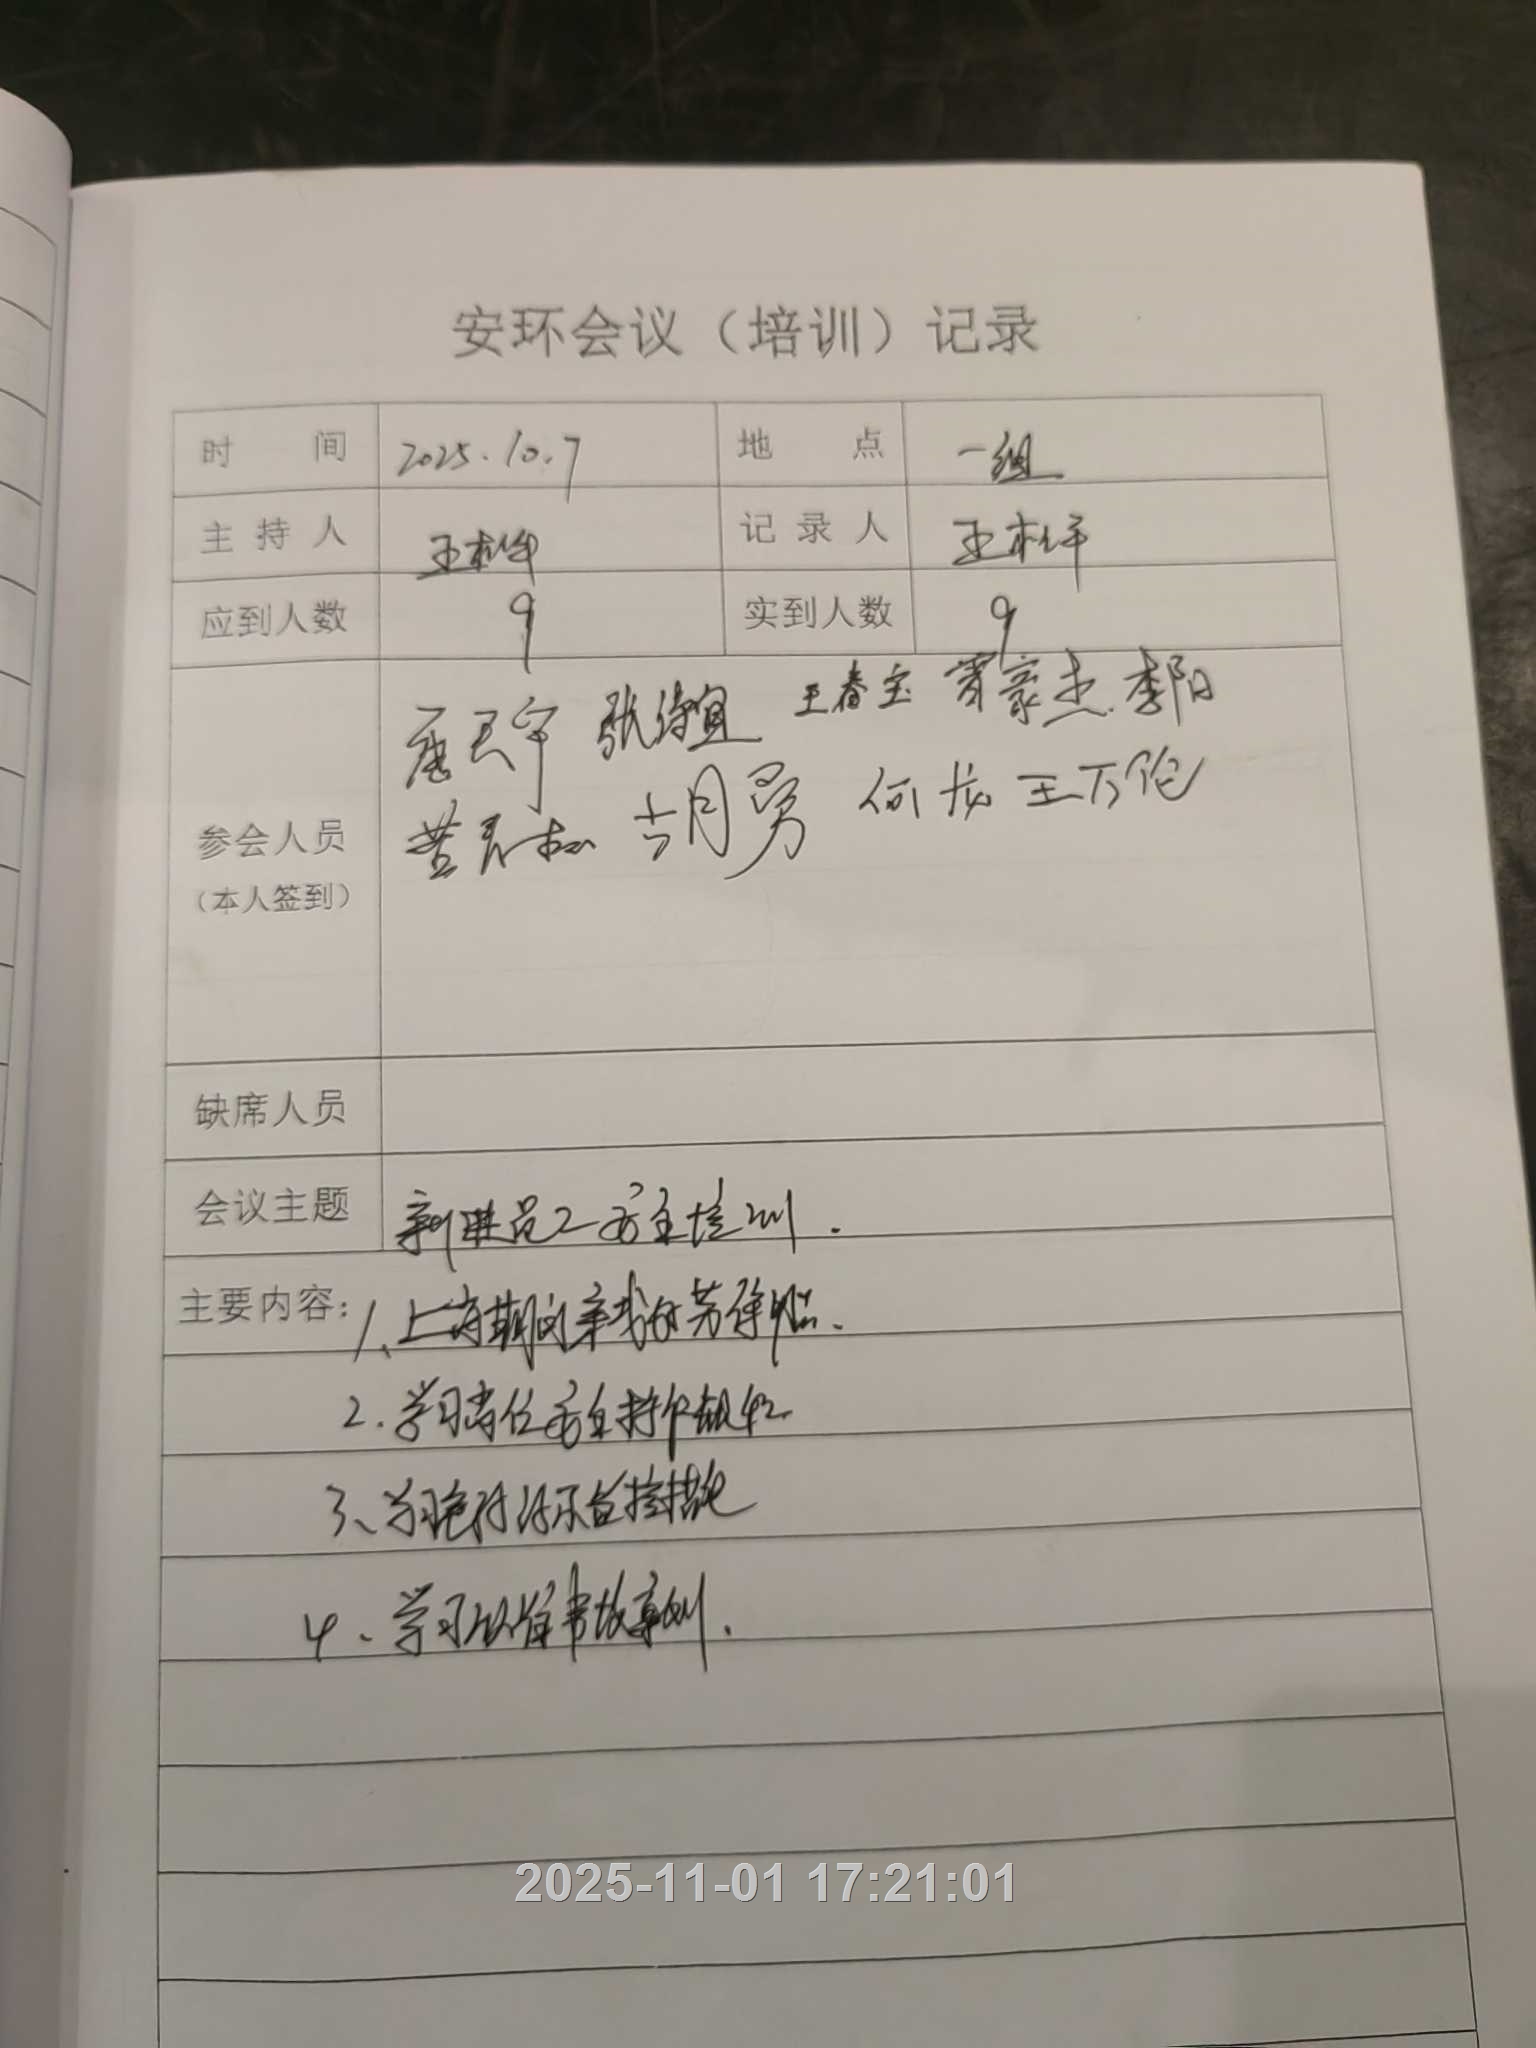 安环会议（培训）记录
时 间 2025.10.7 地 点 一组
主 持 人 王 记 录 人 王
应到人数 9 实到人数 9
唐天宇 张绮宜 王春宝 贾豪杰 李阳
黄青松 胡勇 何龙 王万伦
参会人员
（本人签到）
缺席人员
会议主题 新进员工安全培训.
主要内容: 1、上岗期间穿戴好劳保用品.
2.学习岗位安全操作规程
3、学习
4、学习 事故案例.
2025-11-01 17:21:01